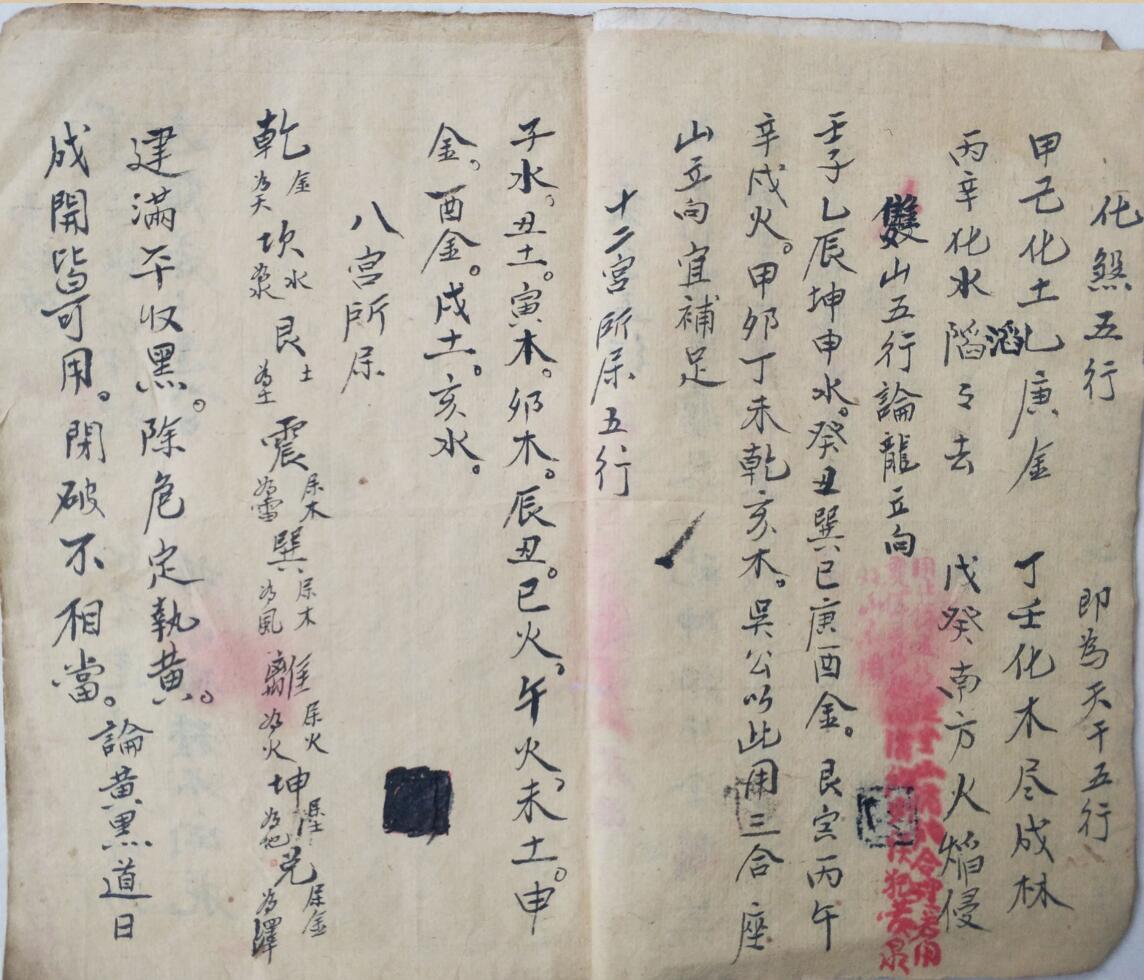 化煞五行 即為天干五行
甲己化土乙庚金 丁壬化木尽成林
丙辛化水滔々去 戊癸南方火焰侵
雙山五行論龍立向
壬子乙辰坤申水。癸丑巽巳庚酉金。艮寅丙午
辛戌火。甲卯丁未乾亥木。吳公以此用三合座
山立向宜補足
十二宮所属五行
子水。丑土。寅木。卯木。辰丑。巳火。午火。未土。申
金。酉金。戌土。亥水。
八宮所属
乾金為天 坎水為泉 艮土為土 震属木為雷 巽属木為風 離属火為火 坤属土為地 兑属金為澤
建滿平收黑。除危定執黄。
成開皆可用。閉破不相當。
論黄黑道日